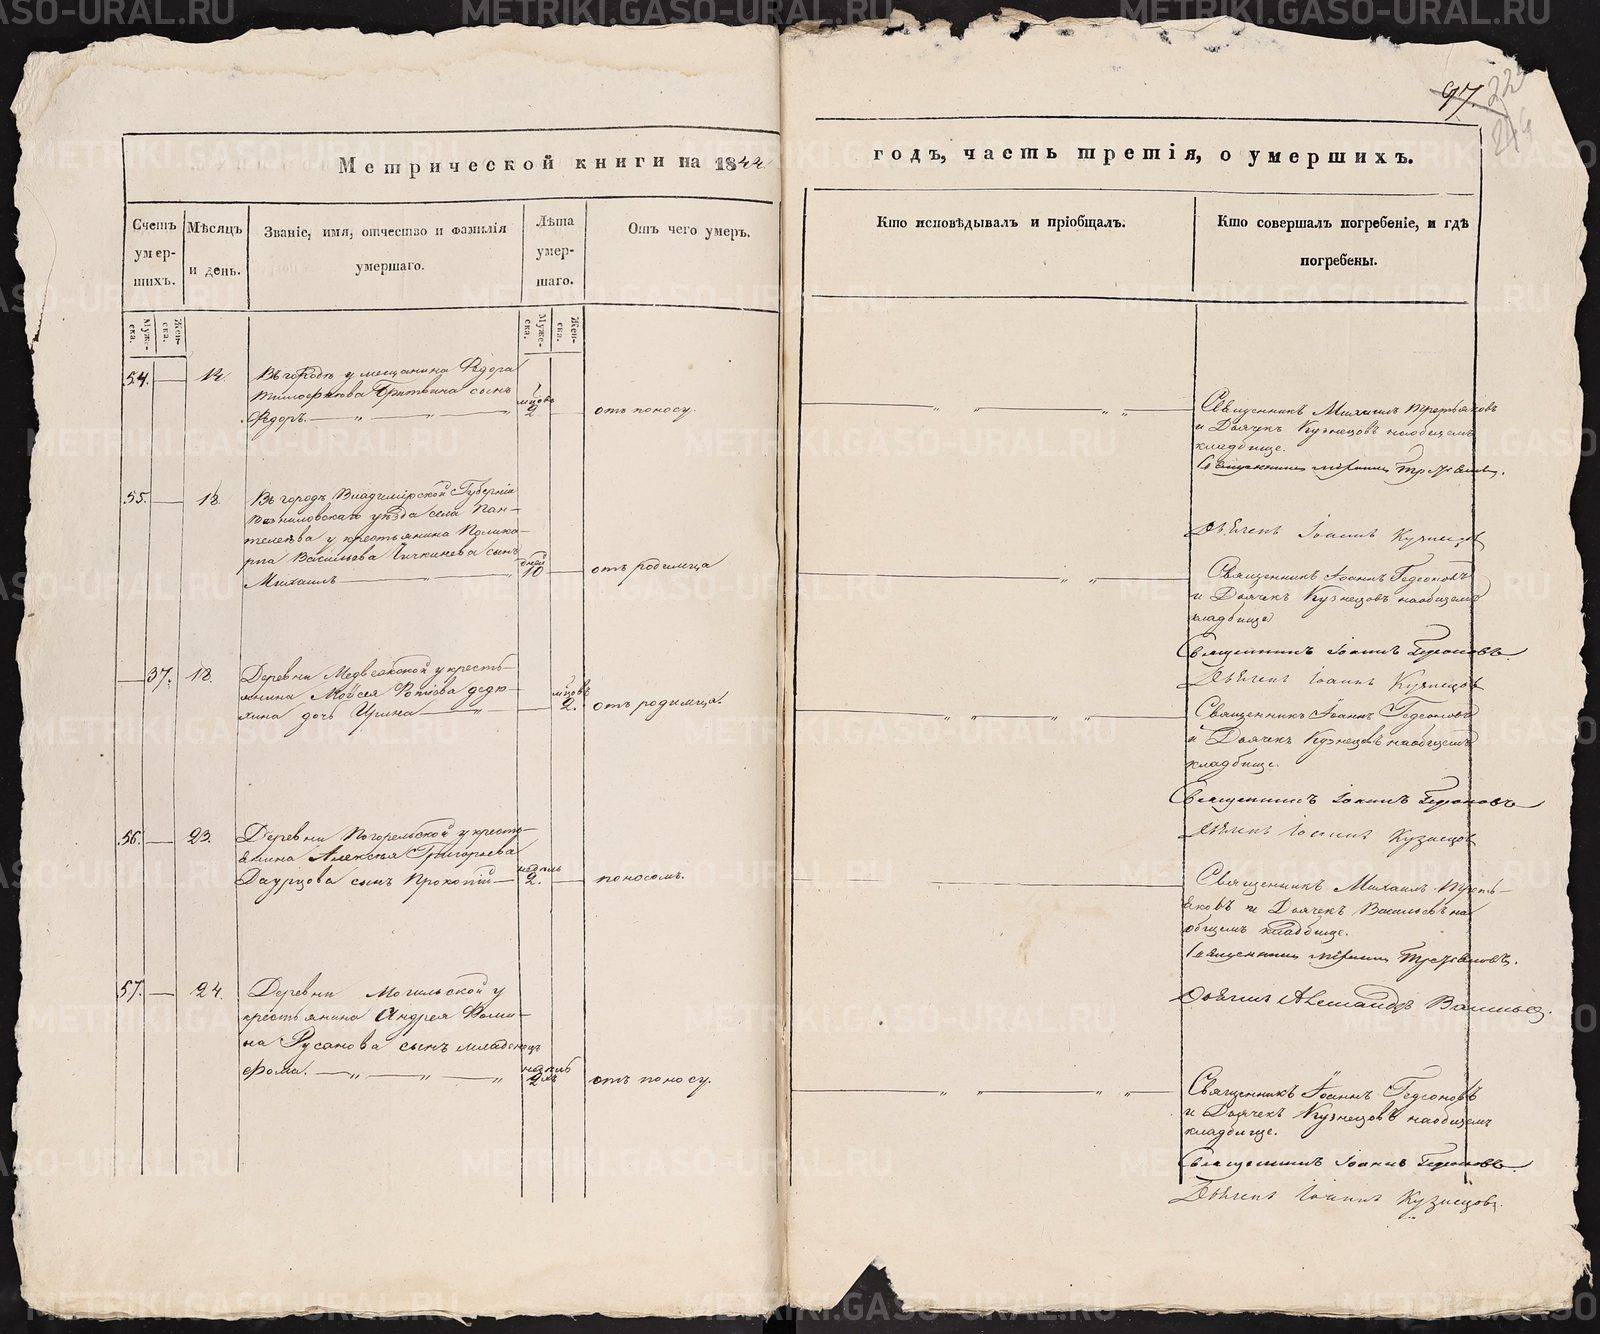 97.
Метрической книги на 1844
годъ, часть третія, о умершихъ.
Счетъ умер-шихъ.
Мѣсяцъ и день.
Званіе, имя, отчество и фамилія умершаго.
Лѣта умер-шаго.
Отъ чего умеръ.
Кто исповѣдывалъ и пріобщалъ.
Кто совершалъ погребеніе, и гдѣ погребены.
Муже-ска.
Жен-ска.
Муже-ска.
Жен-ска.
54.
12.
Въ городѣ у мещанина Ѳедора
сынъ
Ѳедоръ
2
отъ поносу.
Священникъ Михаилъ Третьяковъ
и Дьячекъ Кузнецовъ наобщемъ
кладбище.
Дьячекъ Іоаннъ Кузнецов
55.
18.
Въ городѣ Владимірской Губерніи
уѣзда села Пан-
телеева у крестьянина Полика-
рпа Васильева Чичкинева сынъ
Михаилъ
дней
10
отъ родимца
Священникъ Іоаннъ Гедеоновъ
и Дьячекъ Кузнецовъ наобщемъ
кладбище
Священникъ Іоаннъ Гедеоновъ
Дьячекъ Іоаннъ Кузнецов
37.
18.
Деревни у кресть-
янина Моѵсея дедю-
хина дочь Ирина
2.
отъ родимца.
Священникъ Іоаннъ Гедеоновъ
и Дьячекъ Кузнецовъ наобщемъ
кладбище.
Священникъ Іоаннъ Гедеоновъ
Дьячекъ Іоаннъ Кузнецов
56.
23.
Деревни Погорельской у кресть-
янина Алексѣя Григорьева
Даурцова сынъ Прокопій
недель
2.
поносомъ.
Священникъ Михаилъ Треть-
яковъ и Дьячекъ Васильевъ на
общемъ кладбище.
Дьячекъ Александръ Васильев.
57.
24.
Деревни Могильской у
крестьянина Андрея Фоми-
на Русанова сынъ младенецъ
Фома.
2
отъ поносу.
Священникъ Іоаннъ Гедеоновъ
и Дьячекъ Кузнецовъ наобщемъ
кладбище.
Священникъ Іоаннъ Гедеоновъ
Дьячекъ Іоаннъ Кузнецовъ.
METRIKI.GASO-URAL.RU